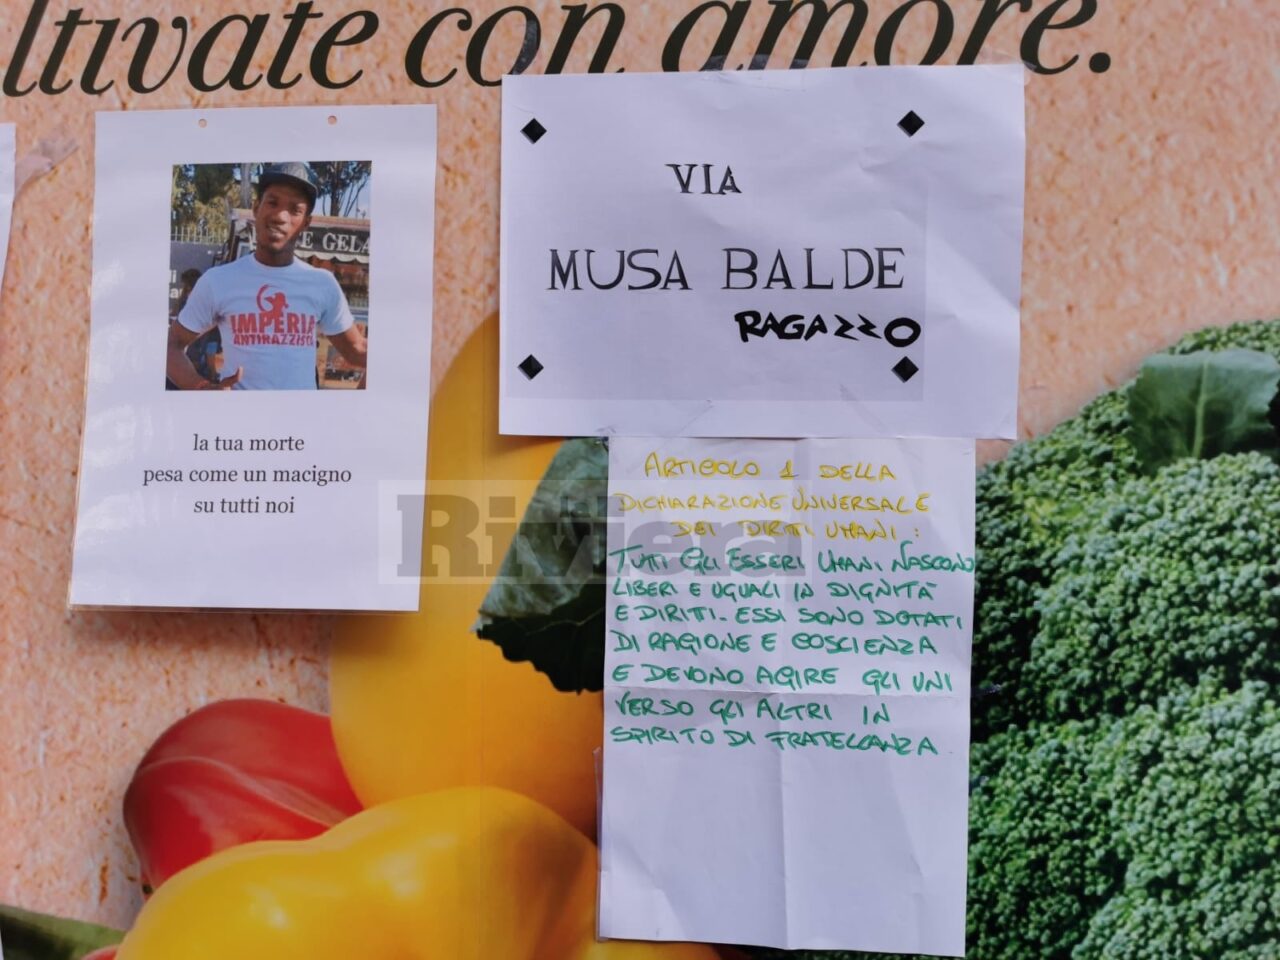 ltivate con amore.
E GELA
IMPERIA
ANTIRAZZISTA
la tua morte
pesa come un macigno
su tutti noi
VIA
MUSA BALDE
RAGAZZO
ARTICOLO 1 DELLA
DICHIARAZIONE UNIVERSALE
DEI DIRITTI UMANI:
TUTTI GLI ESSERI UMANI NASCONO
LIBERI E UGUALI IN DIGNITÀ
E DIRITTI. ESSI SONO DOTATI
DI RAGIONE E COSCIENZA
E DEVONO AGIRE GLI UNI
VERSO GLI ALTRI IN
SPIRITO DI FRATELLANZA
Riviera